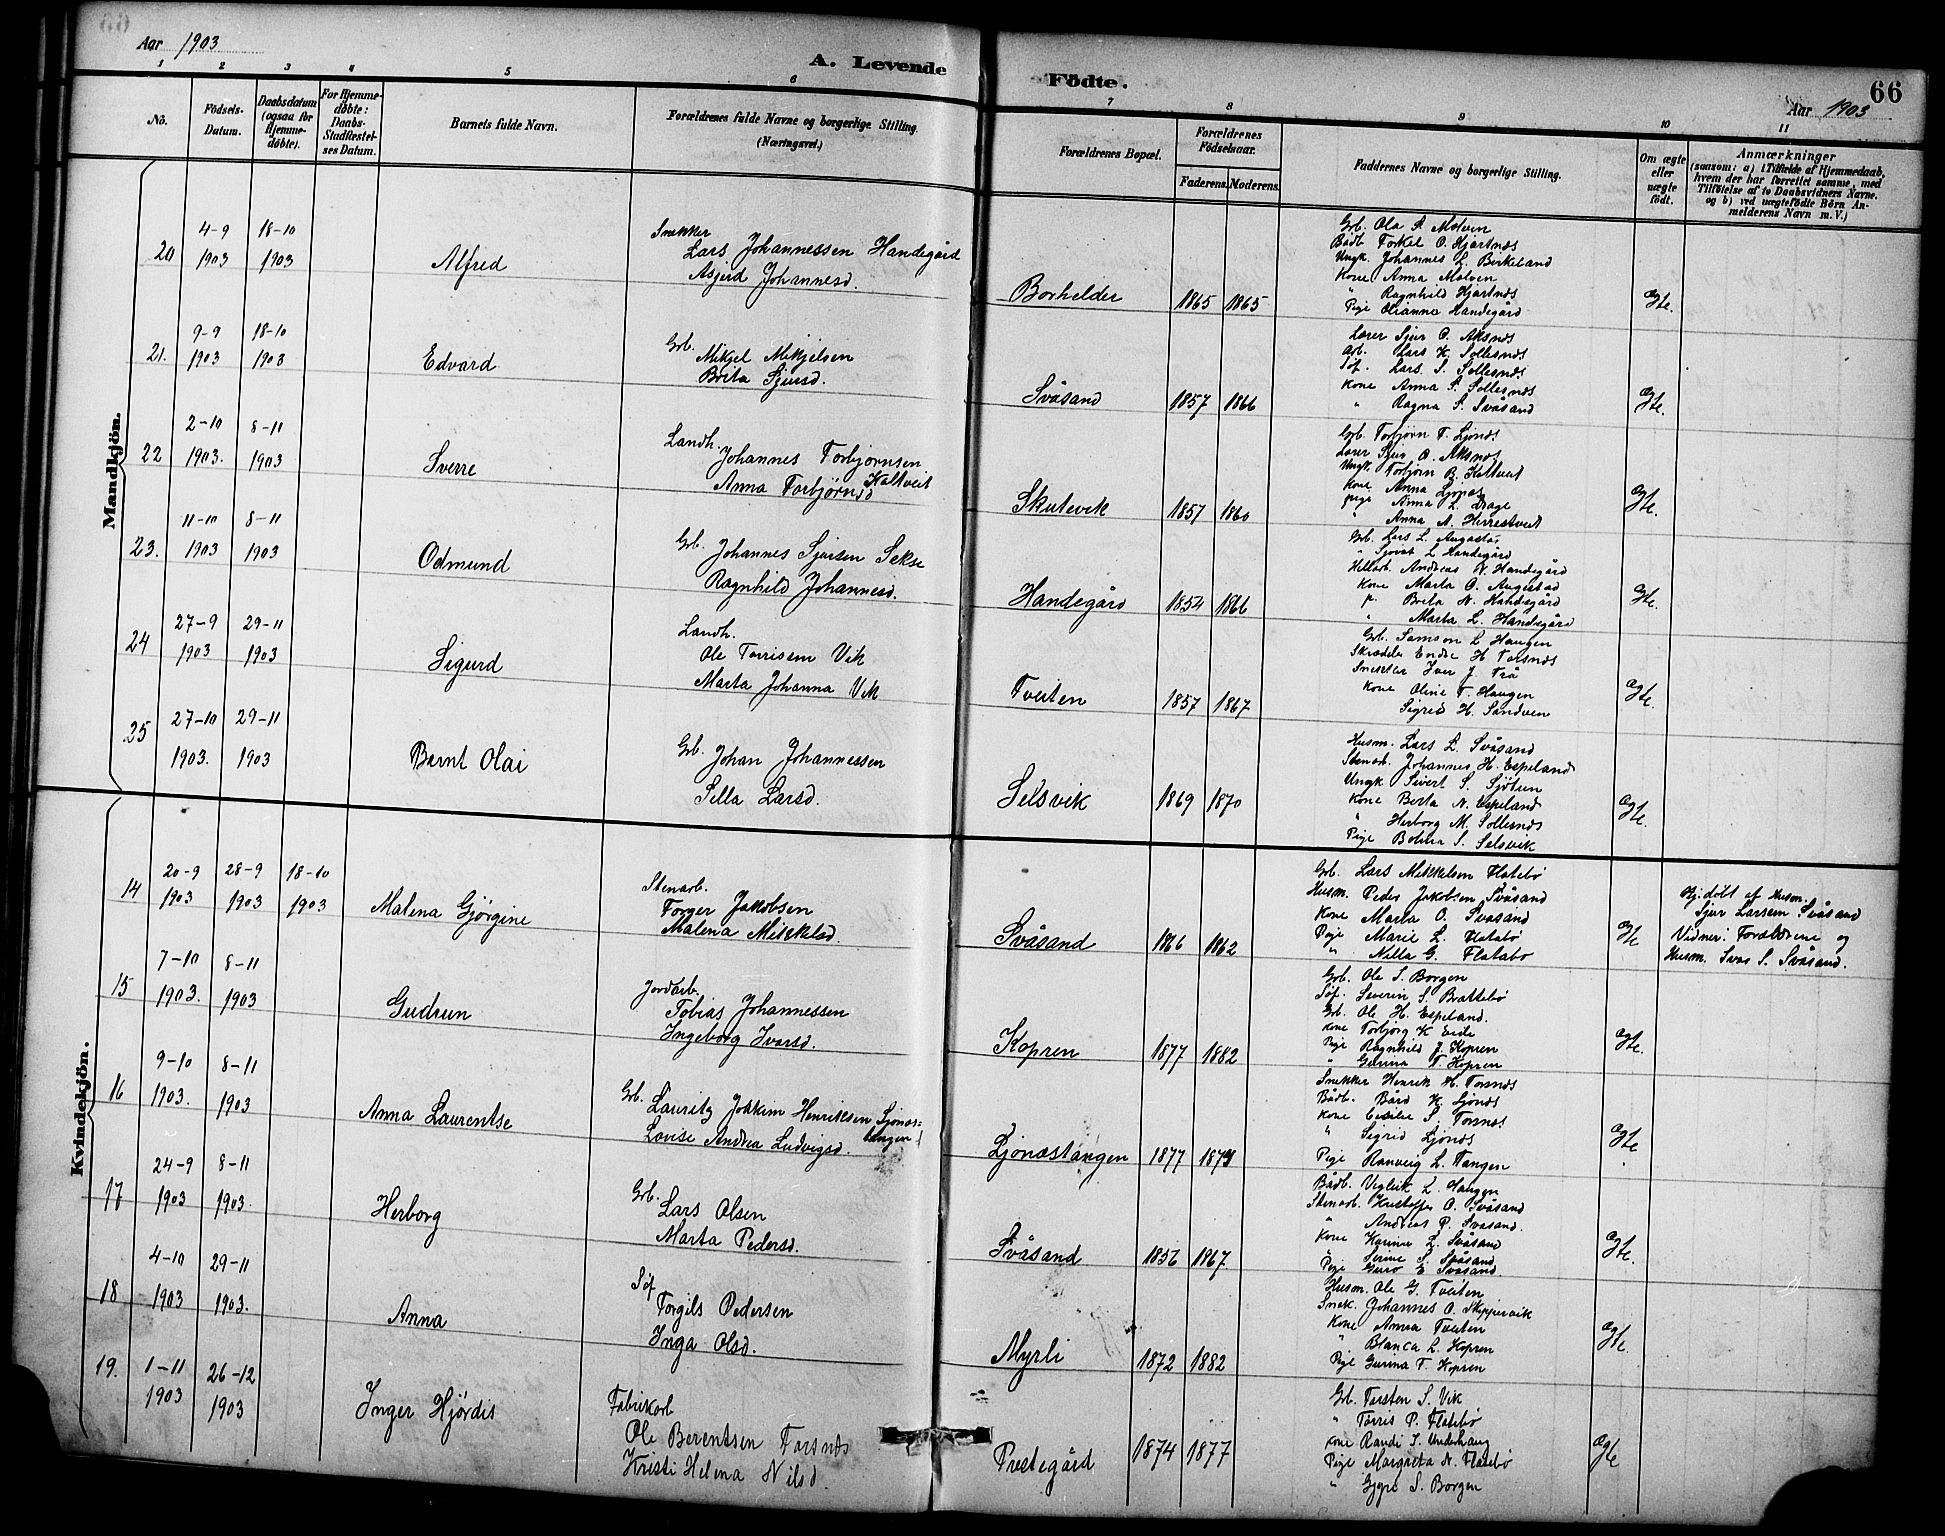 Aar 1903
A. Levende Födte.
66
Aar 1903
1 2 3 4 5 6 7 8 9 10 11
No.
Födsels-Datum.
Daabsdatum (ogsaa for Hjemme-döbte).
For Hjemme-döbte: Daabs-Stadfæstel-ses Datum.
Barnets fulde Navn.
Forældrenes fulde Navne og borgerlige Stilling. (Næringsvei.)
Forældrenes Bopæl.
Forældrenes Födselsaar.
Faderens. Moderens.
Faddernes Navne og borgerlige Stilling.
Om ægte eller uægte födt.
Anmærkninger
(saasom: a) i Tilfælde af Hjemmedaab,
hvem der har forrettet samme, med
Tilföielse af to Daabsvidners Navne.
og b) ved uægtefödte Börn An-
melderens Navn m. V.)
Mandkjön.
20 4-9 1903 18-10 1903 Alfred
Snekker
Lars Johannessen Handegård
Asjerd Johannesd.
Borhelder 1865 1865
Grb. Ola A Molven
Bådb Torkel O. Hjartnæs
Ungk. Johannes L. Birkeland
Kone Anna Molven
" Ragnhild Hjartnæs
Pige Olianna Handegård
Ægte.
21. 9-9 1903 18-10 1903 Edvard
Grb.
Mikjel Mikjelsen
Brita Sjursd.
Svåsand 1857 1866
Lærer Sjur O. Aksnæs
Arb. Lars K. Sollesnæs
Söf. Lars S. Sollesnæs
Kone Anna S. Sollesnæs
" Ragna S. Svåsand
Ægte.
22 2-10 1903. 8-11 1903 Sverre
Landh.
Johannes Torbjørnsen Kaltveit
Anna Torbjørnsd
Skutevik 1857 1860
Grb. Torbjørn T. Ljonæs
Lærer Sjur O. Aksnæs
Ungk. Torbjørn B. Kaltveit
Kone Anna Ljonæs
Pige Anna L. Drage
" Anna N. Herrestveit
Ægte.
23. 11-10 1903 8-11 1903 Odmund
Grb. Johannes Sjursen Sekse
Ragnhild Johannesd.
Handegård 1854 1866
Grb. Lars L. Augastad
" Sjovat L Handegård
Andreas N. Handegård
Kone Marta O. Augestad
p. Brita N. Handegård
" Marta L. Handegård
Ægte.
24 27-9 1903 29-11 1903 Sigurd
Landh.
Ole Torrisen Vik
Marta Johanna Vik
Tveiten 1857 1867
Grb. Samson L Haugen
Skrædder Endre H Torsnæs
Snekker Iver J Trå
Kone Oline T. Haugen
Sigrid H. Sandven
Ægte.
25 27-10 1903. 29-11 1903 Bernt Olai
Grb. Johan Johannessen
Sella Larsd.
Selsvik 1869 1870
Husm. Lars L. Svåsand
Stenarb. Johannes H. Espeland
Ungk Sivert S. Sjötun
Kone Berta N. Espeland
" Herborg M. Sollesnæs
Pige Bolina S. Selsvik
Ægte.
Kvindekjön.
14 20-9 1903 28-9 1903 18-10 1903 Malena Gjørgine
Stenarb.
Torger Jakobsen
Malena Mikkelsd.
Svåsand 1866 1862
Grb. Lars Mikkelsen Flatebø
Husm. Peder Jakobsen Svåsand
Kone Marta O. Svåsand
Pige Marie L. Flatabø
" Nilla G. Flatabø
Ægte
Hj. døbt af Husm.
Sjur Larsen Svåsand
Vidner: Forældrene og
Husm. Svas S. Svåsand.
15 7-10 1903. 8-11 1903 Gudrun
Jordarb.
Tobias Johannessen
Ingeborg Ivarsd.
Kopren 1877 1882
Grb. Ole S. Borgen
Söf. Severin S. Brattebö
Grb. Ole H. Espeland.
Kone Torbjörg K Eide
Pige Ragnhild J. Kopren
" Gurina T. Kopren
Ægte.
16 9-10 1903. 8-11 1903 Anna Laurentse
Grb. Lauritz Joakim Henriksen Ljonæs-
tangen
Lovise Andrea Ludvigsd.
Ljonæstangen 1877 1879
Snekker Henrik H. Torsnæs
Bådb. Bård K. Ljonæs
Kone Cecilie S. Torsnæs
" Sigrid Ljonæs
Pige Ranveig L. Tangen
Ægte
17 24-9 1903 8-11 1903. Herborg
Grb.
Lars Olsen
Marta Pedersd.
Svåsand 1856 1867.
Bådb. Viglik L. Haugen
Stenarb. Kristoffer O. Svåsand
" Andreas P. Svåsand.
Kone Karina L. Svåsand
" Serine S. Svåsand
Pige Guro E Svåsand.
Ægte.
18 4-10 1903 29-11 1903. Anna
Söf
Torgils Pedersen
Inga Olsd.
Myrli 1872 1882
Husm. Ole G. Tveiten
Snek. Johannes O. Skippervik
Kone Anna Tveiten
" Blanca L. Kopren
Pige Gurina T. Kopren
Ægte.
19. 1-11 1903 26-12 1903 Inger Hjördis
Fabrikarb
Ole Berentsen Torsnæs
Kristi Helena Nilsd.
Prestegård 1874 1877
Grb. Torsten S. Vik
" Torris P. Flatebø
Kone Randi S. Underhaug
Pige Margreta N. Flatebø
" Gjyri S. Borgen
Ægte